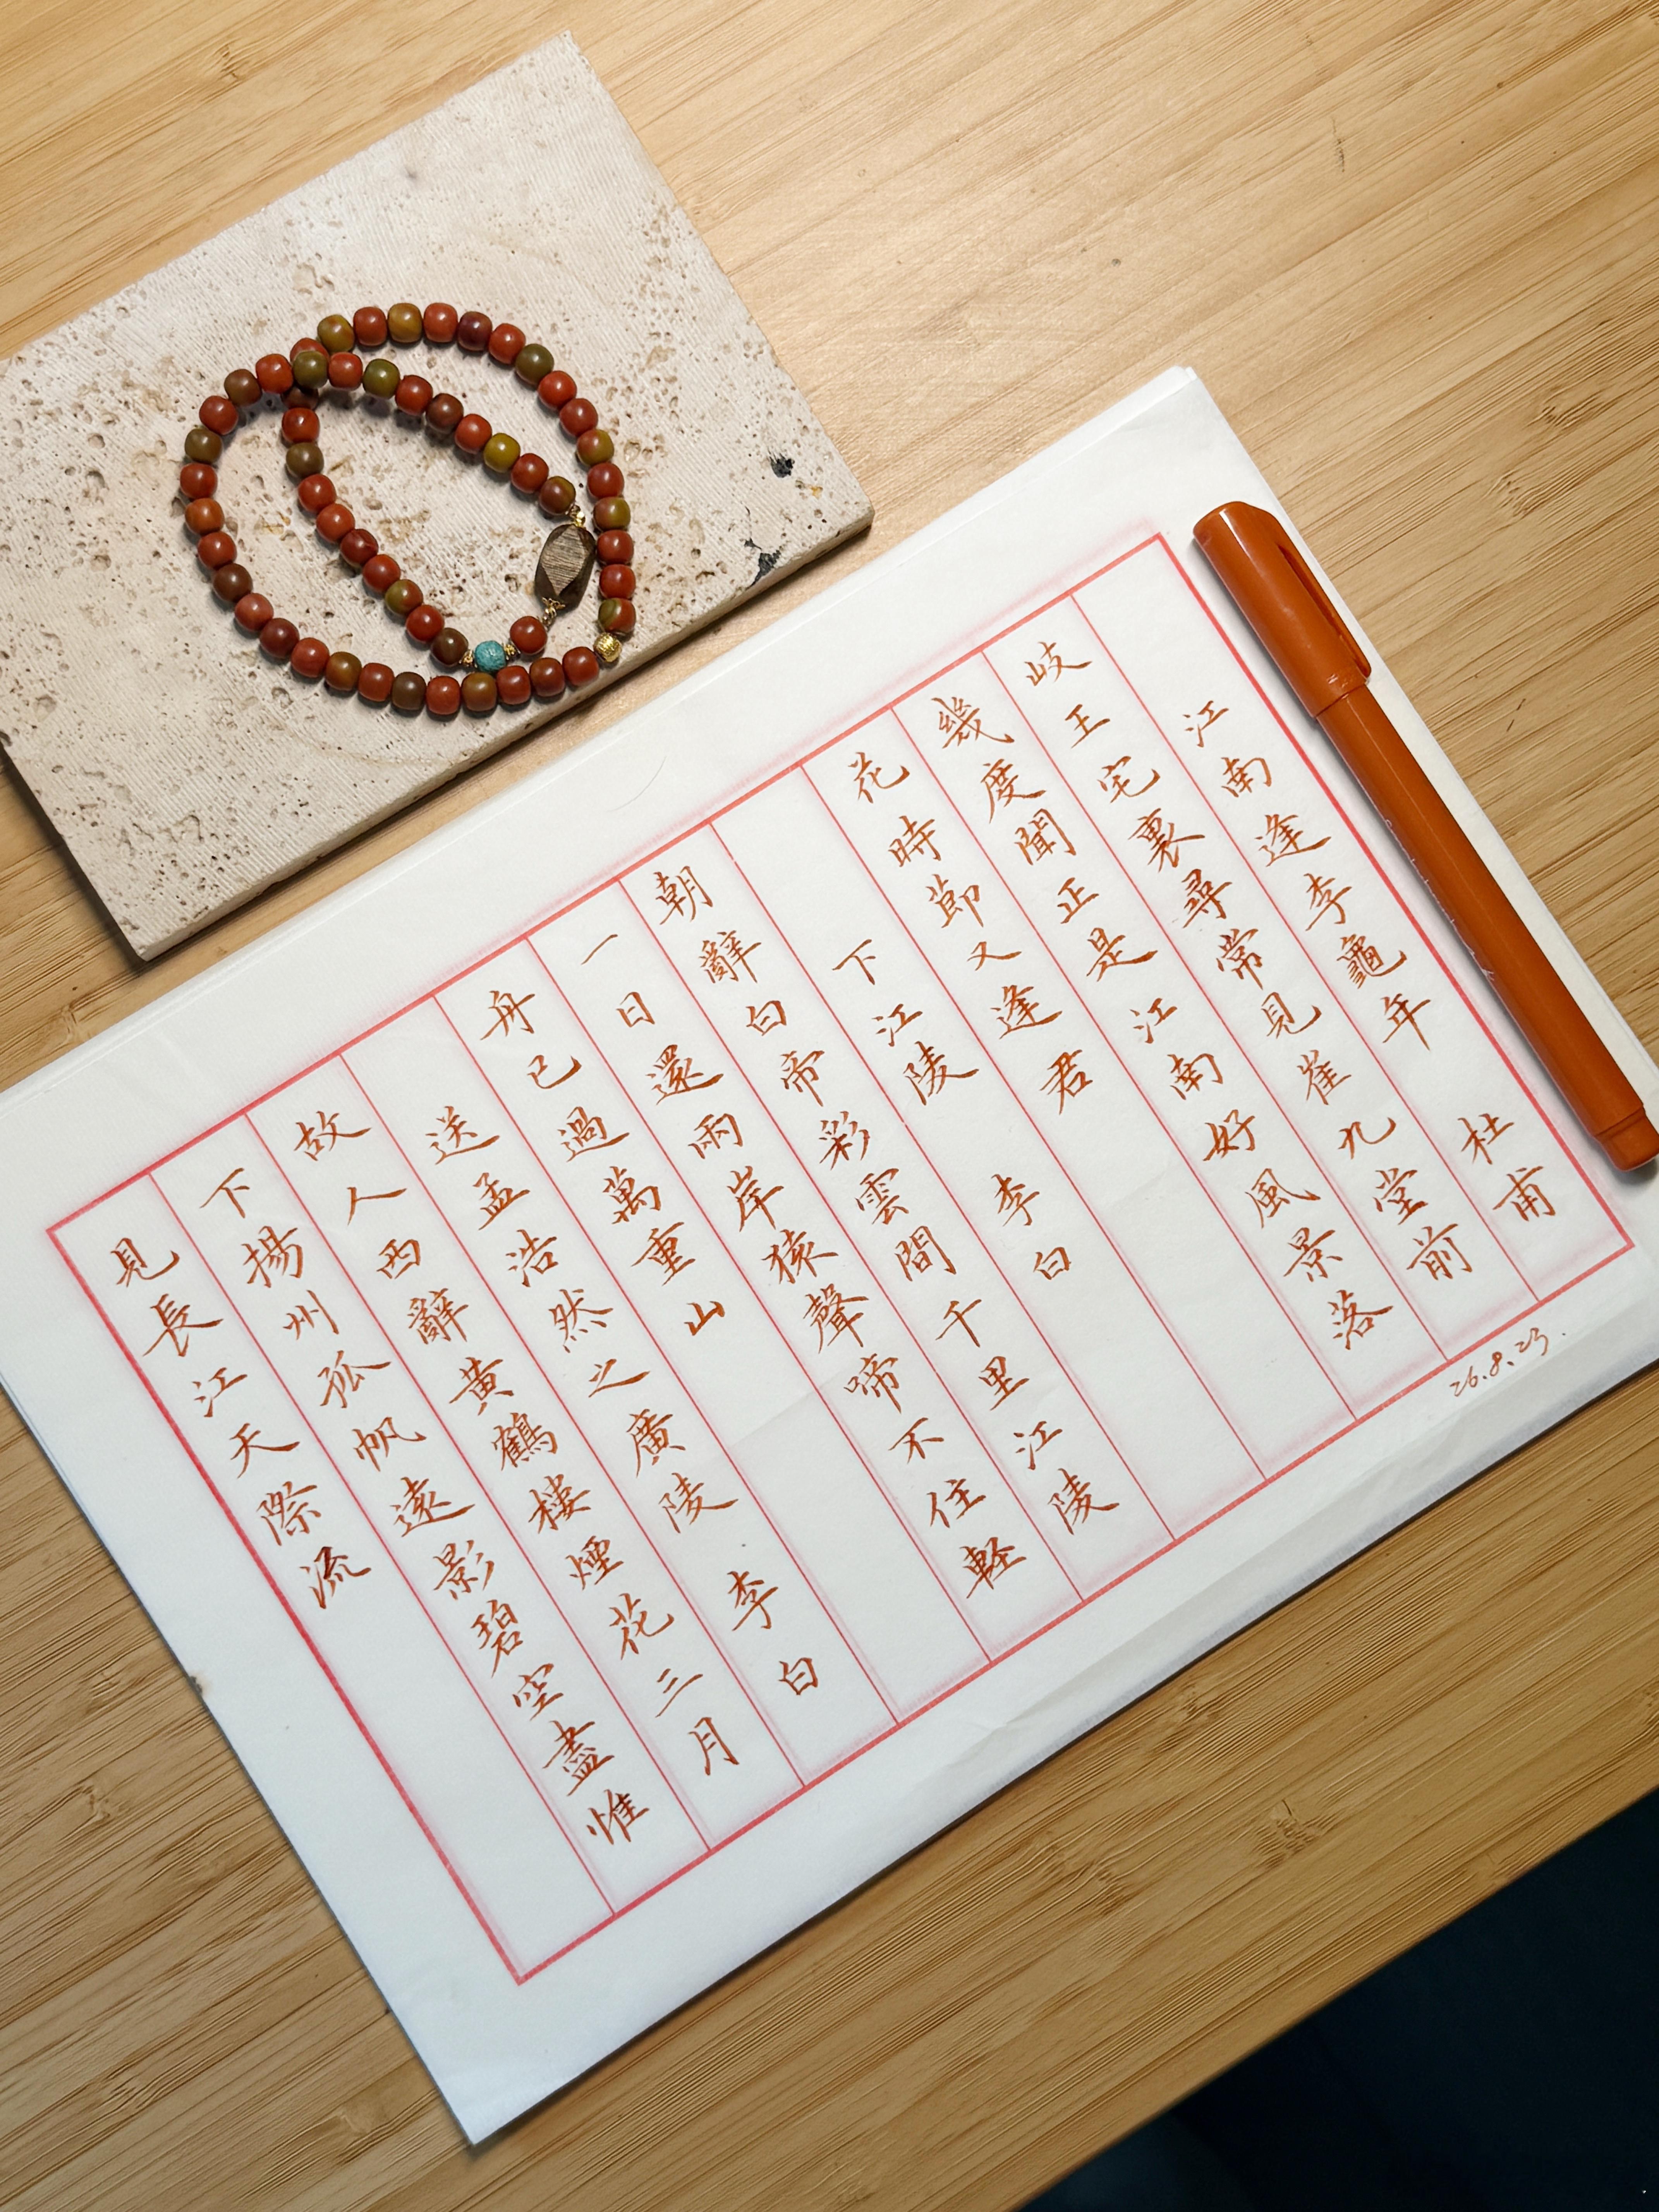 江南逢李龜年 杜甫
岐王宅裏尋常見崔九堂前
幾度聞正是江南好風景落
花時節又逢君
下江陵 李白
朝辭白帝彩雲間千里江陵
一日還兩岸猿聲啼不住軽
舟已過萬重山
送孟浩然之廣陵 李白
故人西辭黃鶴樓煙花三月
下揚州孤帆遠影碧空盡惟
見長江天際流
26.8.23.